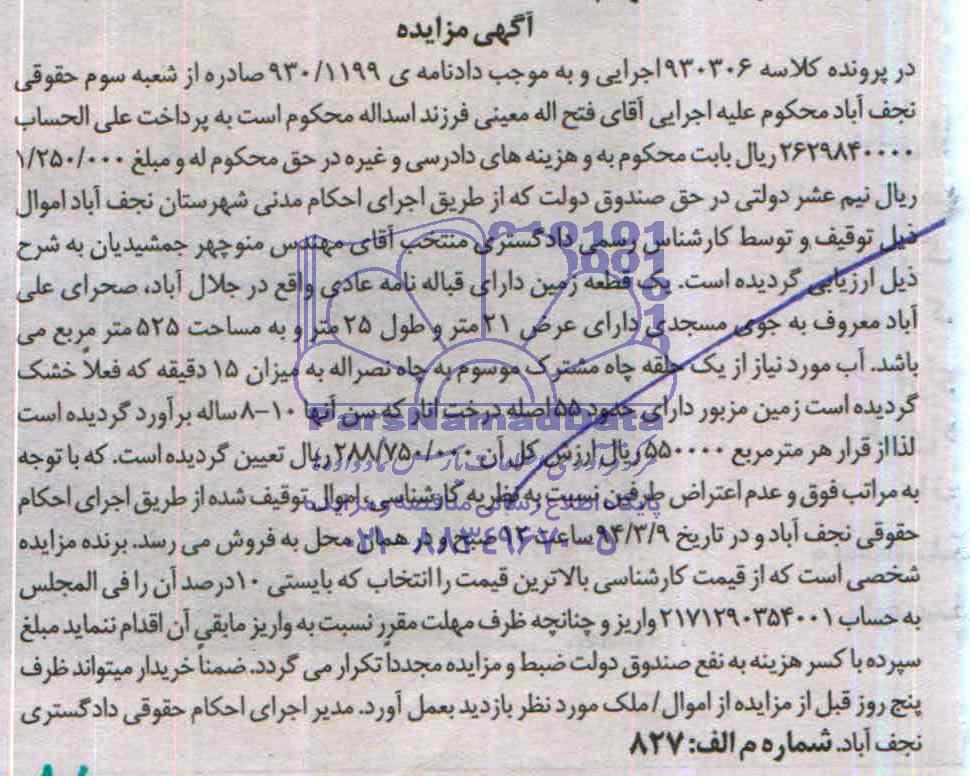 آگهی مزایده
در پرونده کلاسه ۹۳۰۳۰۶ اجرایی و به موجب دادنامه ی ۹۳۰/۱۱۹۹ صادره از شعبه سوم حقوقی
نجف آباد محکوم علیه اجرایی آقای فتح اله معینی فرزند اسداله محکوم است به پرداخت علی الحساب
۲۶۲۹۸۴۰۰۰۰ ریال بابت محکوم به و هزینه های دادرسی و غیره در حق محکوم له و مبلغ ۱/۲۵۰/۰۰۰
ریال نیم عشر دولتی در حق صندوق دولت که از طریق اجرای احکام مدنی شهرستان نجف آباد اموال
ذیل توقیف و توسط کارشناس رسمی دادگستری منتخب آقای مهندس منوچهر جمشیدیان به شرح
ذیل ارزیابی گردیده است. یک قطعه زمین دارای قباله نامه عادی واقع در جلال آباد، صحرای علی
آباد معروف به جوی مسجدی دارای عرض ۲۱ متر و طول ۲۵ متر و به مساحت ۵۲۵ متر مربع می
باشد. آب مورد نیاز از یک حلقه چاه مشترک موسوم به چاه نصراله به میزان ۱۵ دقیقه که فعلاً خشک
گردیده است زمین مزبور دارای حدود ۵۵ اصله درخت انار که سن آنها ۱۰-۸ ساله برآورد گردیده است
لذا از قرار هر مترمربع ۵۵۰۰۰۰ ریال ارزش کل آن ۲۸۸/۷۵۰/۰۰۰ ریال تعیین گردیده است. که با توجه
به مراتب فوق و عدم اعتراض طرفین نسبت به نظریه کارشناسی، اموال توقیف شده از طریق اجرای احکام
حقوقی نجف آباد و در تاریخ ۹۴/۳/۹ ساعت ۱۲ صبح و در همان محل به فروش می رسد. برنده مزایده
شخصی است که از قیمت کارشناسی بالاترین قیمت را انتخاب که بایستی ۱۰درصد آن را فی المجلس
به حساب ۲۱۷۱۲۹۰۳۵۴۰۰۱ واریز و چنانچه ظرف مهلت مقرر نسبت به واریز مابقی آن اقدام ننماید مبلغ
سپرده با کسر هزینه به نفع صندوق دولت ضبط و مزایده مجدداً تکرار می گردد. ضمناً خریدار میتواند ظرف
پنج روز قبل از مزایده از اموال/ ملک مورد نظر بازدید بعمل آورد. مدیر اجرای احکام حقوقی دادگستری
نجف آباد. شماره م الف: ۸۲۷
ParsNamadData
پایگاه اطلاع رسانی مناقصه و مزایده
۰۲۱-۸۸۳۴۹۶۷۰-۵